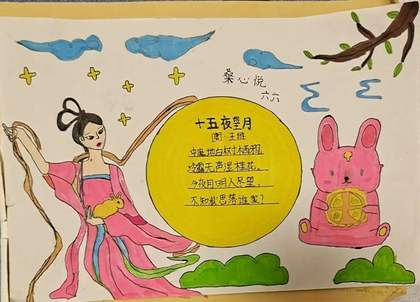 桑心悦
六六
十五夜望月
[唐] 王
中庭地白树栖鸦,
冷露无声湿桂花。
今夜月明人尽望,
不知秋思落谁家?